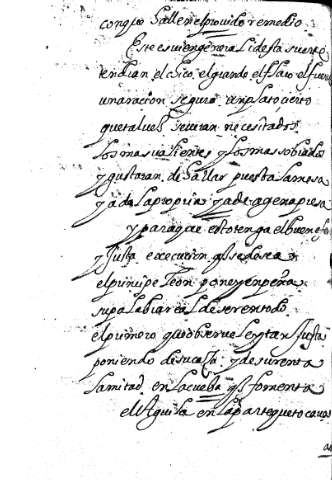 con q̃ se Halle nel provido remedio
Este es vi en general i desta suerte
tendran, el chico, el grande el flaco el fuerte
una racion segura, un plato cierto
que tal vez se veran necesitados
los mas valientes y los mas sobrados
y gustaran de hallar puesta la mesa
y a de la propria y a de agena presa
y para que esto tenga el buen efeto
y Justa execucion q̃ se desea
el principe Leon pone y enpeña
su palabra real de ser en todo
el primero que observe ley tan Justa
poniendo de su casa y de su renta
la mitad en la cueba q̃ se fomenta
el Aguila en la parte que to ca